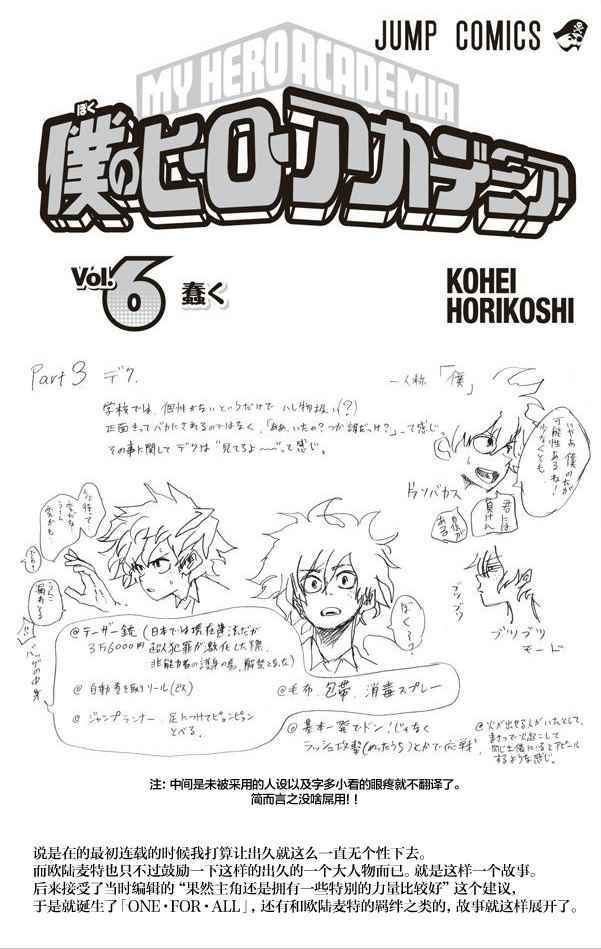 JUMP COMICS
MY HERO ACADEMIA
ぼく
僕のヒーローアカデミア
Vol.6 蠢く
KOHEI
HORIKOSHI
Part 3 デク.
一人称「僕」
学校では、個性がないというだけで ハレ物扱い(?)
正面きってバカにされるのではなく、「ああ、いたの?つか誰だっけ?」って感じ。
その事に関してデクは“見てろよ〜〜”って感じ。
いやあ 僕の方が
可能性あるね!
少なくとも
君には
負けん
自信が
ある
ドランバカス
ぼくろ?
ブツブツ
ブツブツ
モード
@テーザー銃 (日本では現在違法だが
3万6000円 超人犯罪が激化した際、
非能力者の護身の為、解禁となった)
@自動巻き取りリール(ビス)
@ジャンプランナー 足につけてピョンピョン
とべる。
@毛布、包帯、消毒スプレー
@基本一発でドン!じゃなく
ラッシュ攻撃(めったうち)とかで応戦
@火が出せる人がいたとして、
まさつで火起こして
同じ土俵にいるとアピール
するような感じ。
バッグの中身
注: 中间是未被采用的人设以及字多小看的眼疼就不翻译了。
简而言之没啥屌用!!
说是在的最初连载的时候我打算让出久就这么一直无个性下去。
而欧陆麦特也只不过鼓励一下这样的出久的一个大人物而已。就是这样一个故事。
后来接受了当时编辑的“果然主角还是拥有一些特别的力量比较好”这个建议,
于是就诞生了「ONE・FOR・ALL」, 还有和欧陆麦特的羁绊之类的, 故事就这样展开了。